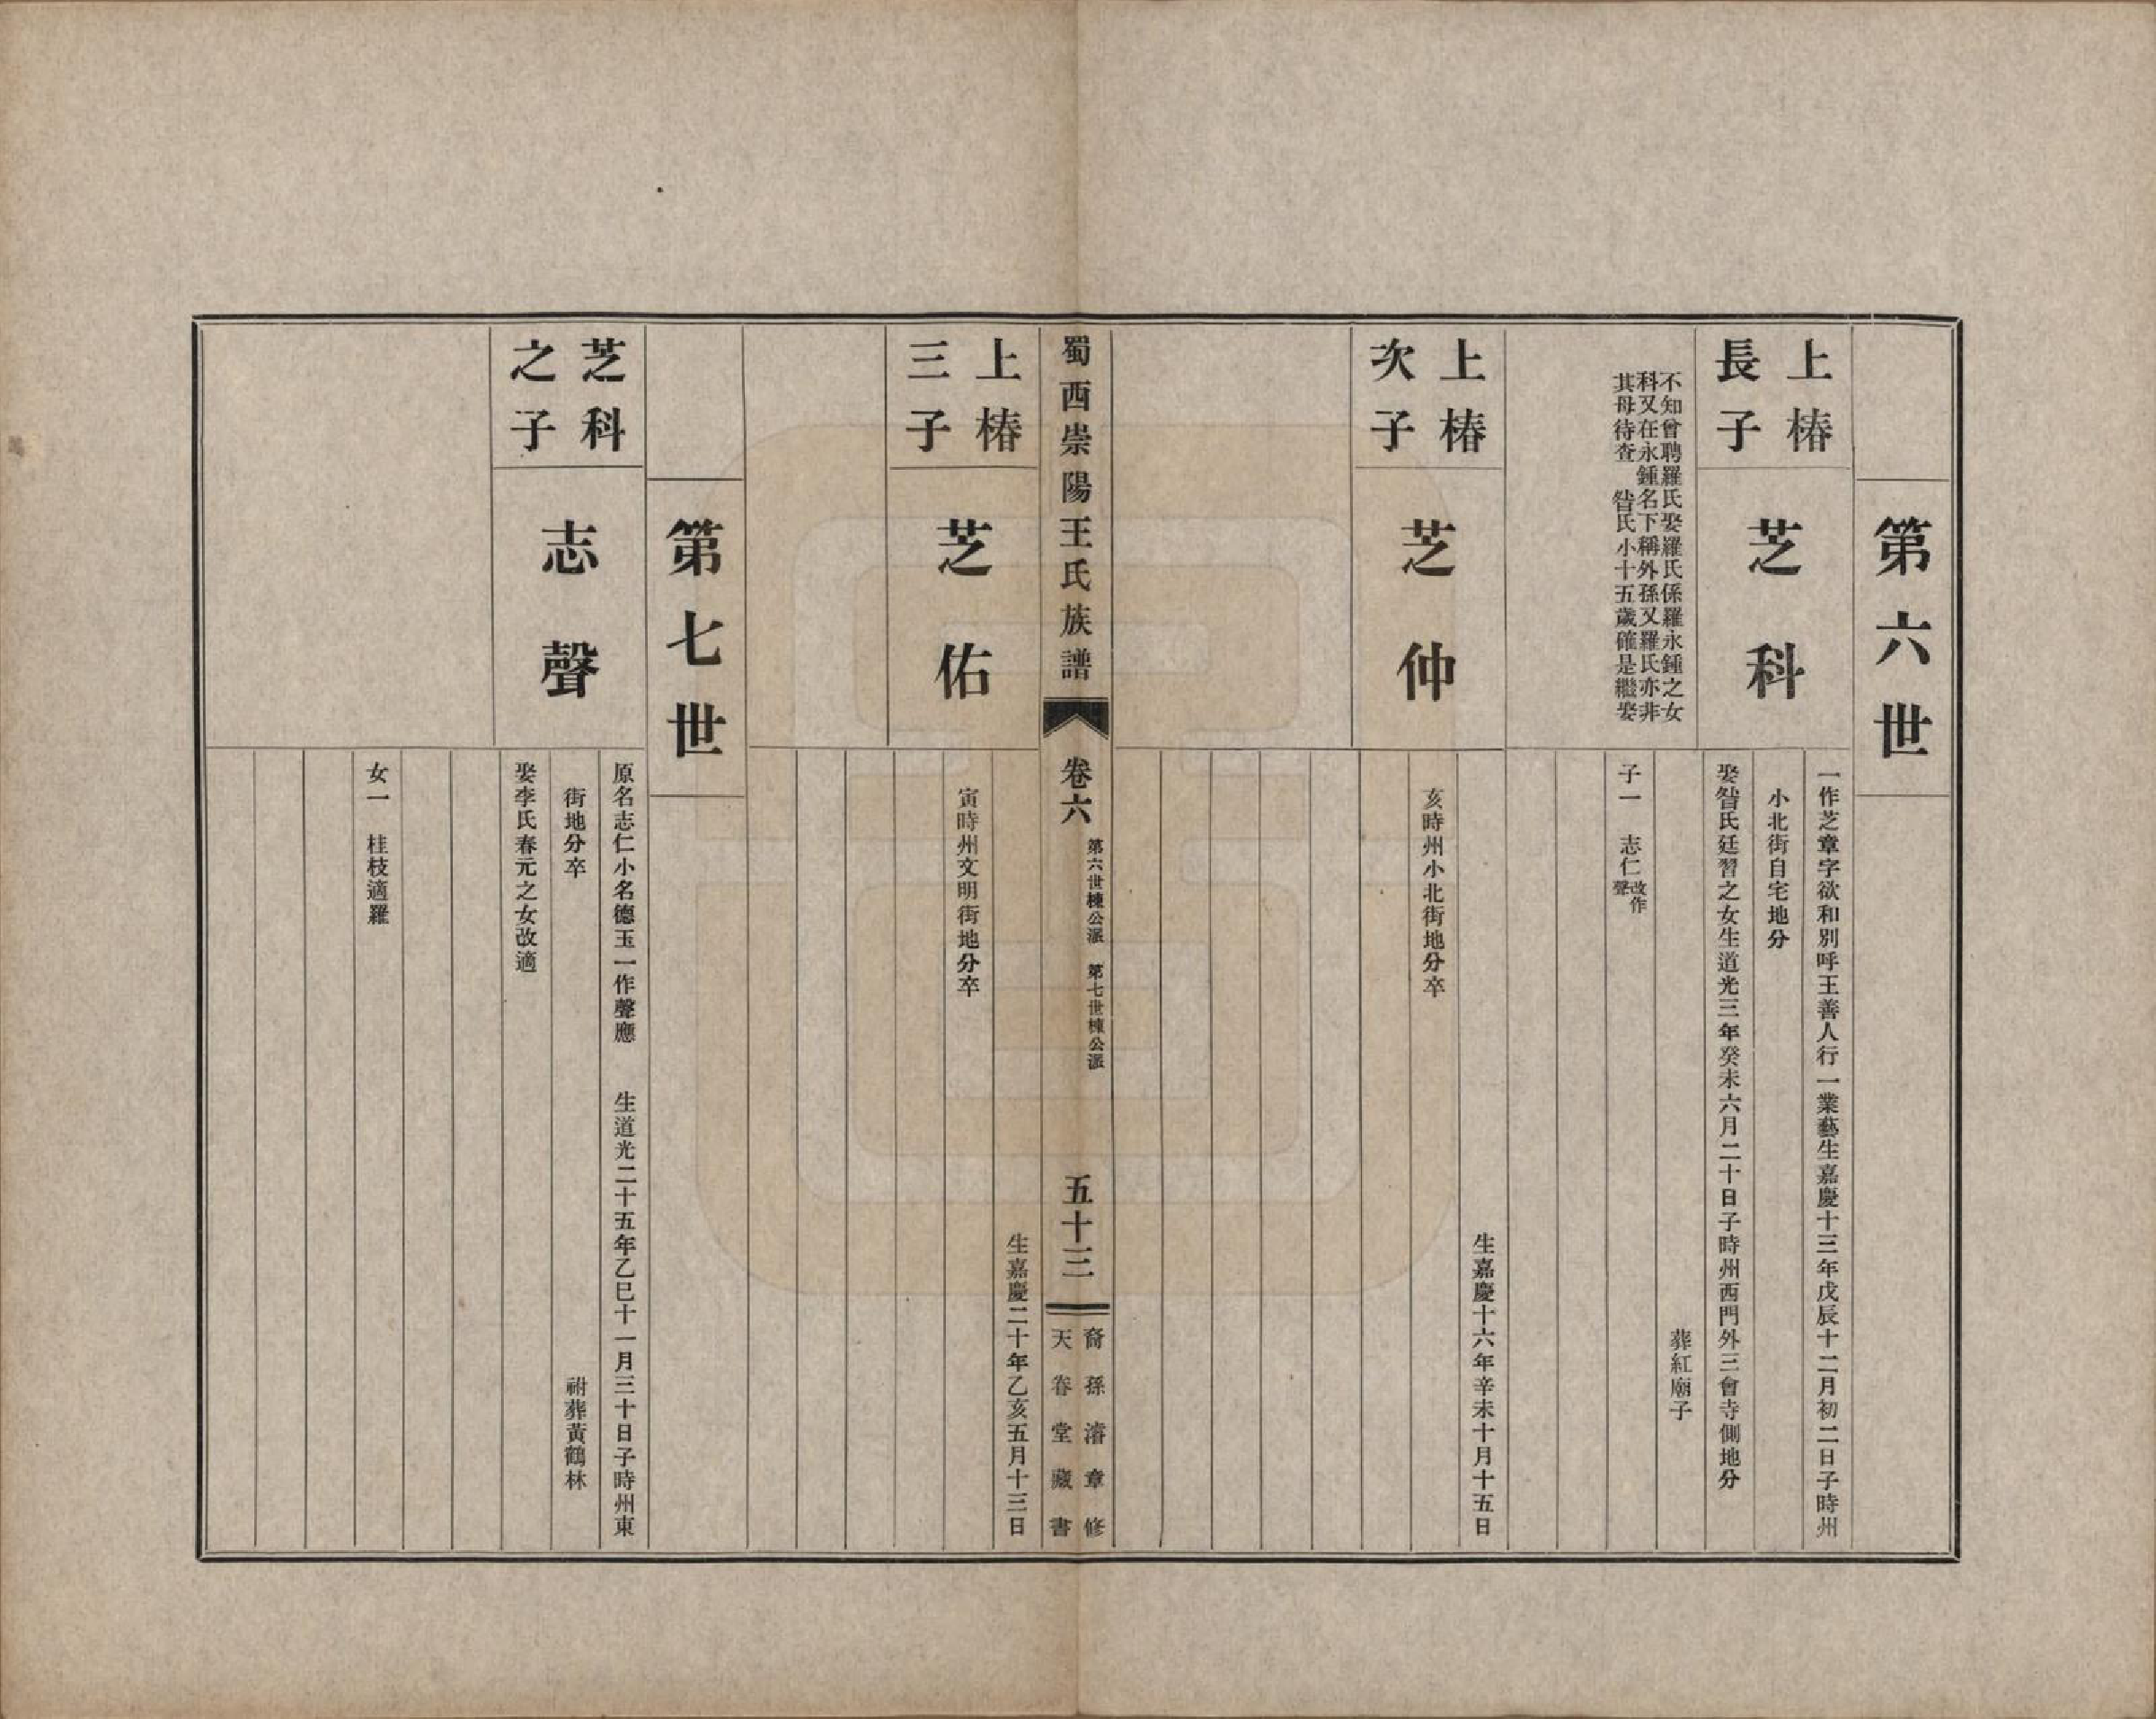 第六世
上椿
長子
芝科
一作芝章字欲和別呼王善人行一業藝生嘉慶十三年戊辰十二月初二日子時州
小北街自宅地分
娶昝氏廷習之女生道光三年癸未六月二十日子時州西門外三會寺側地分
葬紅廟子
子一　志仁改作聲
不知曾聘羅氏娶羅氏係羅永鍾之女
科又在永鍾名下稱外孫又羅氏亦非
其母待查　昝氏小十五歲確是繼娶
上椿
次子
芝仲
生嘉慶十六年辛未十月十五日
亥時州小北街地分卒
蜀西崇陽王氏族譜
卷六
第六世棟公派　第七世棟公派
五十三
裔孫濬章修
天春堂藏書
上椿
三子
芝佑
生嘉慶二十年乙亥五月十三日
寅時州文明街地分卒
第七世
芝科
之子
志聲
原名志仁小名德玉一作聲應　生道光二十五年乙巳十一月三十日子時州東
街地分卒　祔葬黃鶴林
娶李氏春元之女改適
女一　桂枝適羅